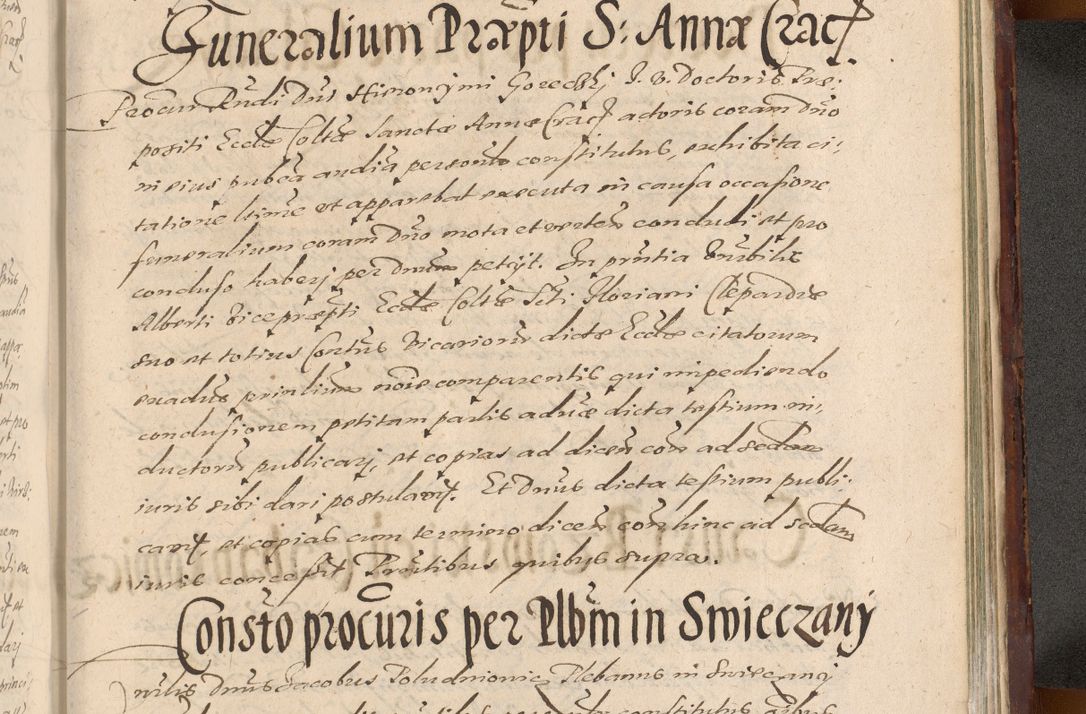 Funeralium Præpti S: Annæ Crac.
Procur Rndi Dni Hieronymi Gorecky J. V. Doctoris Præ:
positi Eccle Collte Sanctæ Annæ Crac actoris coram Dno
in eius publca audia personlr constitutus, exhibita ci,
tatione ltime ut apparebat executa in causa occasione
funeralium coram Dno mota et verten concludi et pro
concluso haberj per Dnum petijt. In pntia Vnrbilis
Alberti Vicepræpti Eccle Collte Scti Floriani Clepardiæ
suo et totius Cortus Vicariorum dictæ Eccle citatorum
noie comparentis qui impediendo
conclusionem petitam partis aduæ dicta testium in,
ductorum publicarj, et copias ad dicen con ad sedam
iuris sibi dari postulavit. Et Dnus dicta testium publi,
cavit, et copias cum termino dicen con hinc ad sedam
iuris concessit Prntibus quibus supra.
Consto procuris per Plbm in Swieczanÿ
Dnus Jacobus Poludniowic Plebanus in Swieczanÿ
constitutus